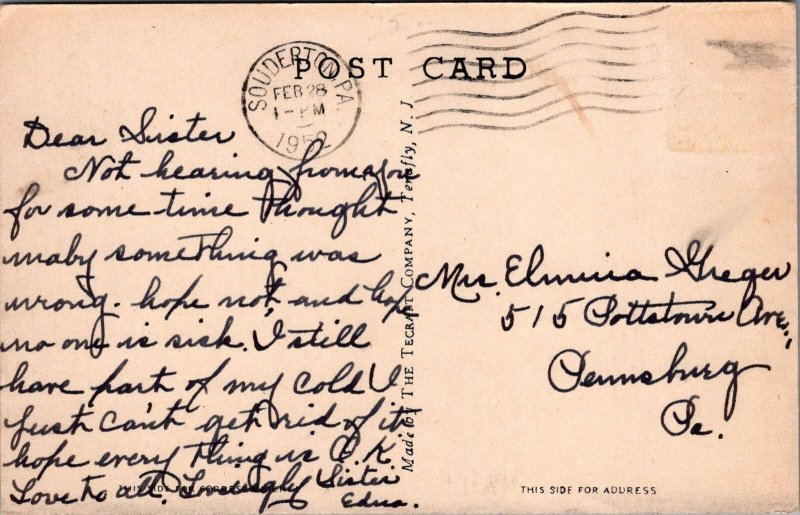 POST CARD
SOUDERTON, PA.
FEB 28
1 - PM
1952
Dear Sister
Not hearing from you
for some time thought
maby something was
wrong. hope not, and hope
no one is sick. I still
have part of my cold I
just can't get rid of it
hope everything is O.K.
Love to all. Lovingly Sister
Edna.
Made by THE TECRAFT COMPANY, Tenafly, N. J.
Mrs. Elmina Greger
515 Pottstown Ave.,
Pennsburg
Pa.
THIS SIDE FOR
THIS SIDE FOR ADDRESS